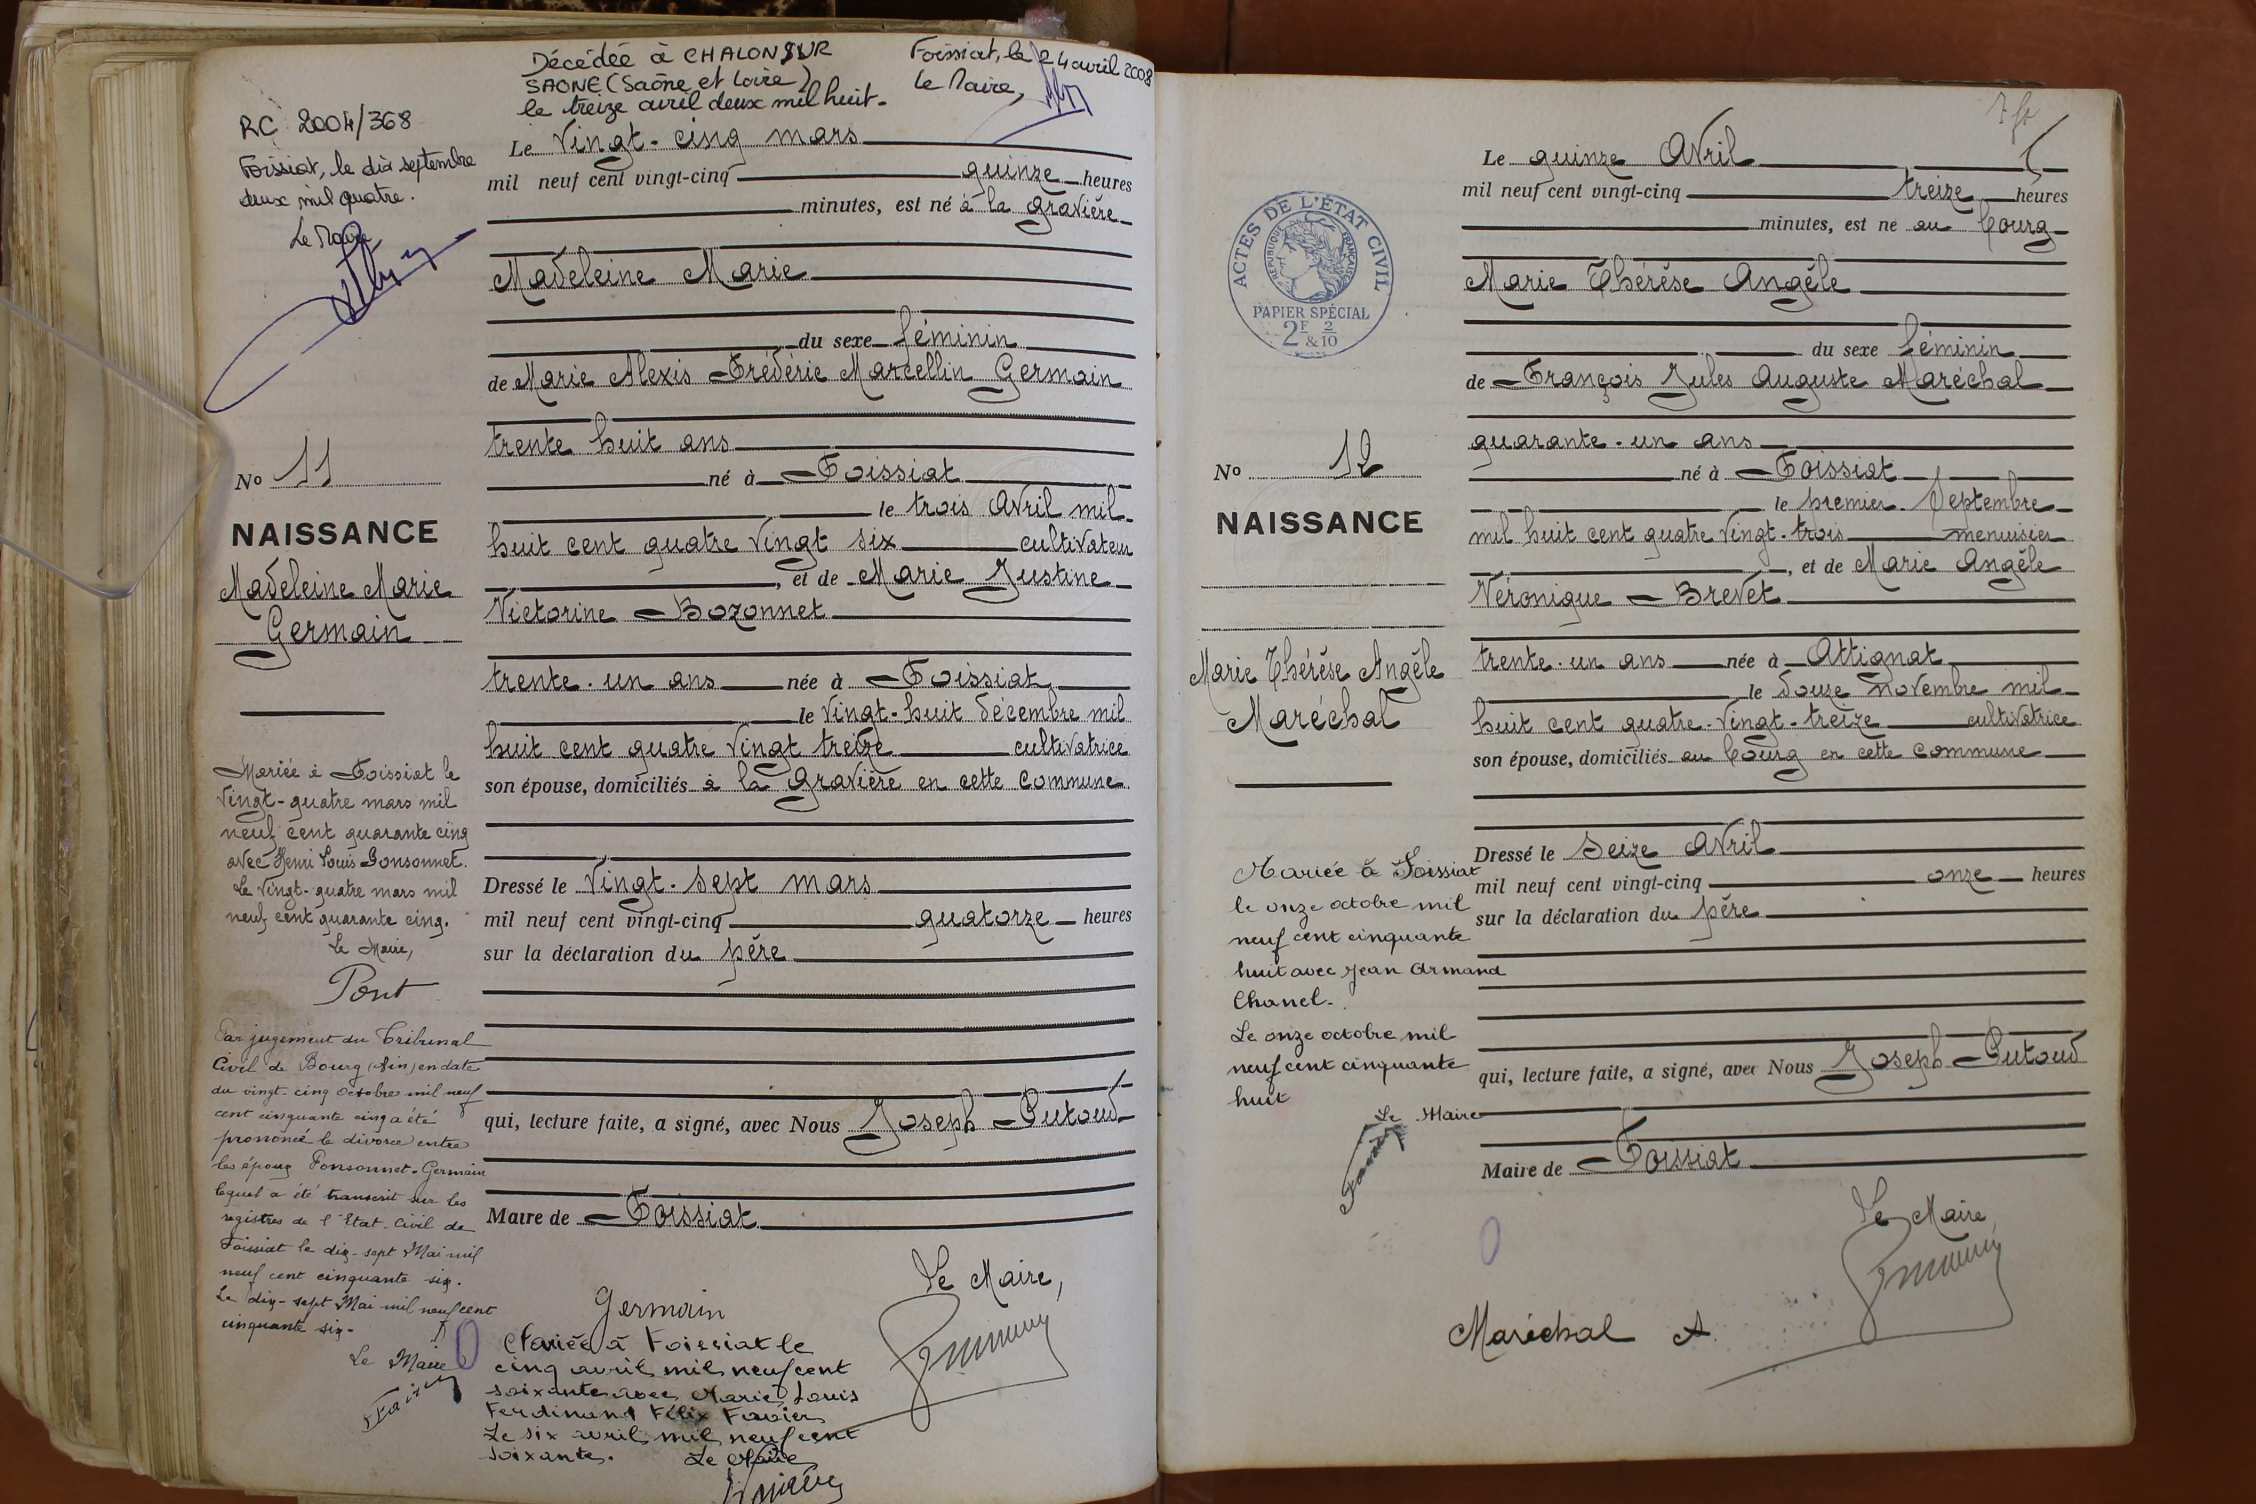 Décédée à CHALON SUR
SAONE (Saône et Loire)
le treize avril deux mil huit.
Foissiat, le 24 avril 2008
Le Maire,
RC 2004/368
Foissiat, le dix septembre
deux mil quatre.
Le Maire
Le Vingt-cinq mars
mil neuf cent vingt-cinq quinze heures
minutes, est né à la Gravière
Madeleine Marie
du sexe féminin
de Marie Alexis Frédéric Marcellin Germain
trente huit ans
né à Foissiat
le trois Avril mil
huit cent quatre Vingt six cultivateur
, et de Marie Justine
Victorine Bozonnet
trente-un ans née à Foissiat
le Vingt-huit décembre mil
huit cent quatre Vingt treize cultivatrice
son épouse, domiciliés à la Gravière en cette commune
Dressé le Vingt-sept mars
mil neuf cent vingt-cinq quatorze heures
sur la déclaration du père
qui, lecture faite, a signé, avec Nous Joseph Putoud
Maire de Foissiat
Le Maire,
Germain
No 11
NAISSANCE
Madeleine Marie
Germain
Mariée à Foissiat le
Vingt-quatre mars mil
neuf cent quarante cinq
avec Henri Louis Ponsonnet.
Le Vingt-quatre mars mil
neuf cent quarante cinq.
Le Maire,
Pont
Par jugement du Tribunal
Civil de Bourg (Ain) en date
du vingt-cinq Octobre mil neuf
cent cinquante cinq a été
prononcé le divorce entre
les époux Ponsonnet-Germain
lequel a été transcrit sur les
registres de l'Etat-Civil de
Foissiat le dix-sept Mai mil
neuf cent cinquante six.
Le dix-sept Mai mil neuf cent
cinquante six-
Le Maire
Mariée à Foissiat le
cinq avril mil neuf cent
soixante avec Marie Louis
Ferdinand Félix Favier
Le six avril mil neuf cent
soixante.
Le Maire
Le quinze Avril
mil neuf cent vingt-cinq treize heures
minutes, est né au bourg
Marie Thérèse Angèle
du sexe féminin
de François Jules Auguste Maréchal
quarante-un ans
né à Foissiat
le premier Septembre
mil huit cent quatre Vingt-trois menuisier
, et de Marie Angèle
Véronique Brevet
trente-un ans née à Attignat
le douze novembre mil
huit cent quatre-Vingt-treize cultivatrice
son épouse, domiciliés au bourg en cette commune
Dressé le seize Avril
mil neuf cent vingt-cinq onze heures
sur la déclaration du père
qui, lecture faite, a signé, avec Nous Joseph Putoud
Maire de Foissiat
Le Maire,
Maréchal A.
ACTES DE L'ÉTAT CIVIL
RÉPUBLIQUE FRANÇAISE
PAPIER SPÉCIAL
2F & 2/10
No 12
NAISSANCE
Marie Thérèse Angèle
Maréchal
Mariée à Foissiat
le onze octobre mil
neuf cent cinquante
huit avec Jean Armand
Chanel.
Le onze octobre mil
neuf cent cinquante
huit
Le Maire